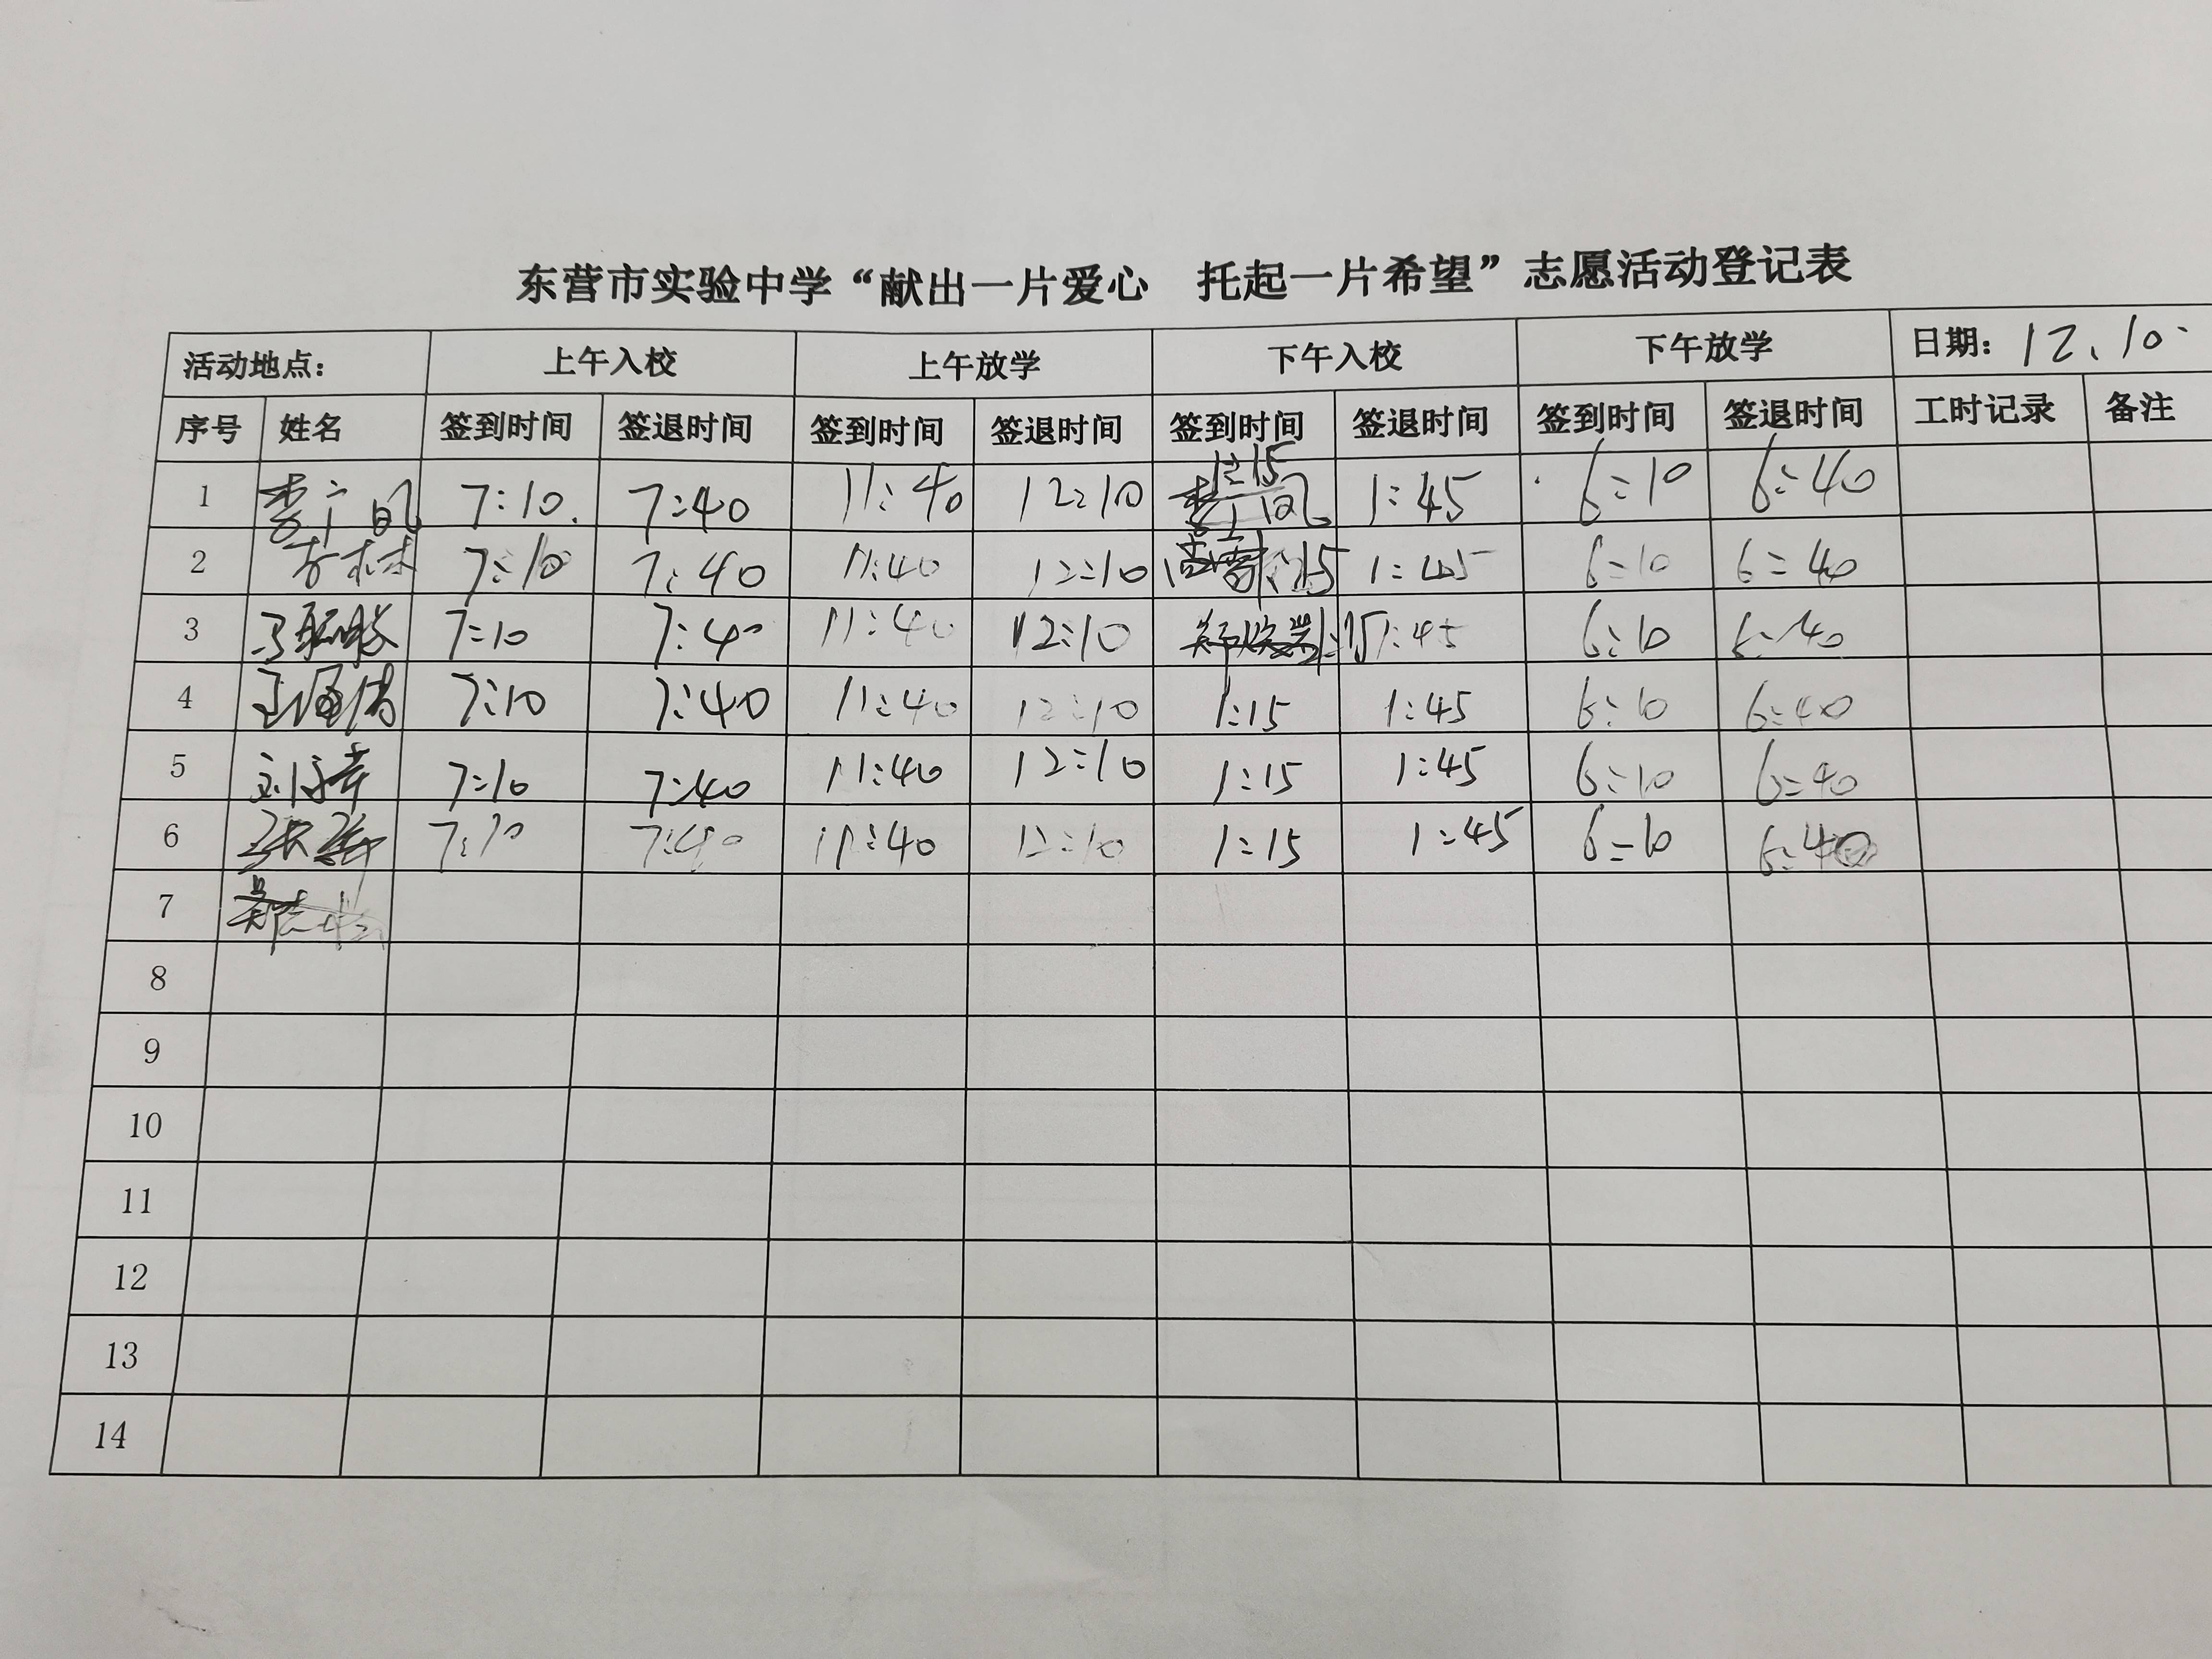 东营市实验中学“献出一片爱心 托起一片希望”志愿活动登记表
活动地点： 上午入校 上午放学 下午入校 下午放学 日期：12.10
序号 姓名 签到时间 签退时间 签到时间 签退时间 签到时间 签退时间 签到时间 签退时间 工时记录 备注
1 7:10 7:40 11:40 12:10 1:15 1:45 6:10 6:40
2 7:10 7:40 11:40 12:10 1:15 1:45 6:10 6:40
3 7:10 7:40 11:40 12:10 1:15 1:45 6:10 6:40
4 7:10 7:40 11:40 12:10 1:15 1:45 6:10 6:40
5 7:10 7:40 11:40 12:10 1:15 1:45 6:10 6:40
6 7:10 7:40 11:40 12:10 1:15 1:45 6:10 6:40
7
8
9
10
11
12
13
14